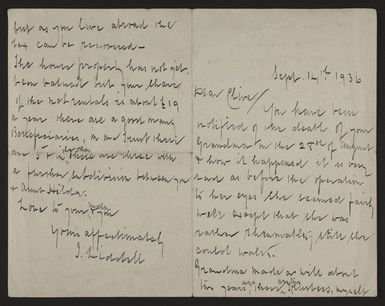 Sept. 14th 1936
Dear Clive/
You have been
notified of the death of your
Grandma on the 25th of August
& how it happened it is very
hard as before the operation
to her eyes she seemed fairly
well except that she was
rather rheumaticy still she
could walk.
Grandma made a will about
two years ago, there are Trustees, myself
but as you live abroad the
tax can be recovered —
The house property has not yet
been valued but your share
of the net rentals is about £19
a year there are a good many
Beneficiaries, in one Trust there
are 5 & in these are three with
a further subdivision between you
& Aunt Hilda.
Love to you
Yours affectionately
J. Liddell